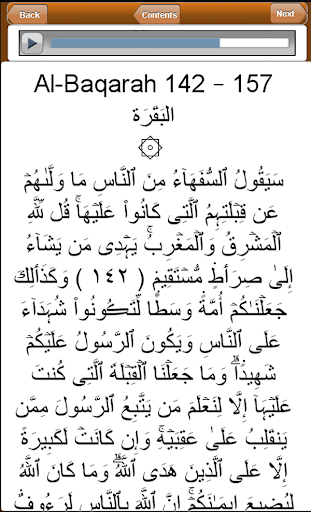 Back Contents Next
Al-Baqarah 142 - 157
البَقَرَة
۞
سَيَقُولُ ٱلسُّفَهَآءُ مِنَ ٱلنَّاسِ مَا وَلَّىٰهُمْ
عَن قِبْلَتِهِمُ ٱلَّتِى كَانُوا۟ عَلَيْهَا‌ۚ قُل لِّلَّهِ
ٱلْمَشْرِقُ وَٱلْمَغْرِبُ‌ۚ يَهْدِى مَن يَشَآءُ
إِلَىٰ صِرَٲطٍ مُّسْتَقِيمٍ ( ١٤٢ ) وَكَذَٲلِكَ
جَعَلْنَـٰكُمْ أُمَّةً وَسَطًا لِّتَكُونُوا۟ شُہَدَآءَ
عَلَى ٱلنَّاسِ وَيَكُونَ ٱلرَّسُولُ عَلَيْكُمْ
شَهِيدًا‌ۗ وَمَا جَعَلْنَا ٱلْقِبْلَةَ ٱلَّتِى كُنتَ
عَلَيْہَآ إِلَّا لِنَعْلَمَ مَن يَتَّبِعُ ٱلرَّسُولَ مِمَّن
يَنقَلِبُ عَلَىٰ عَقِبَيْهِ‌ۚ وَإِن كَانَتْ لَكَبِيرَةً
إِلَّا عَلَى ٱلَّذِينَ هَدَى ٱللَّهُ‌ۗ وَمَا كَانَ ٱللَّهُ
لِيُضِيعَ إِيمَـٰنَكُمْ‌ۚ إِنَّ ٱللَّهَ بِٱلنَّاسِ لَرَءُوفٌ